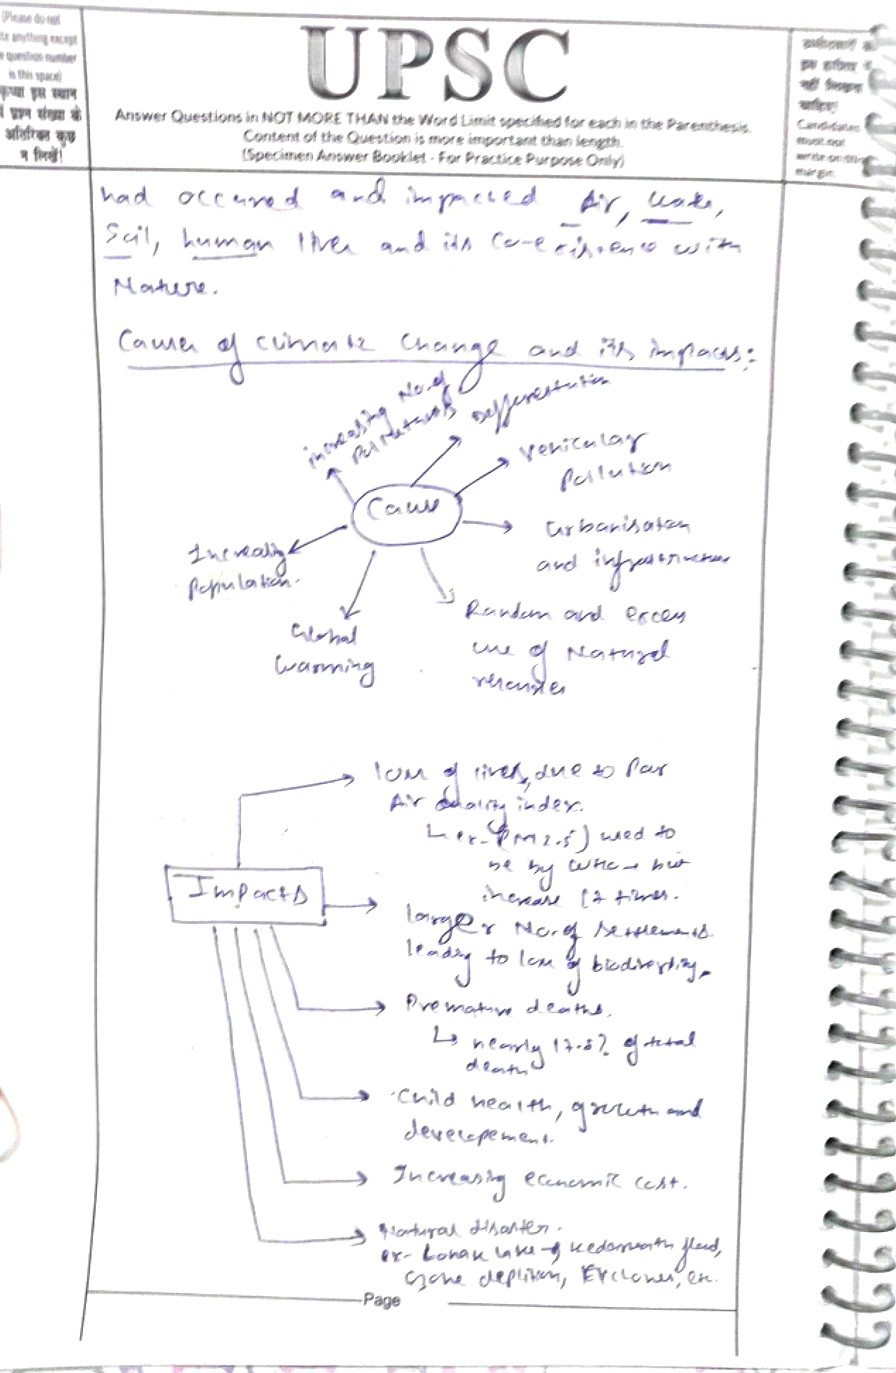 (Please do not
write anything except
the question number
in this space)
कृपया इस स्थान
में प्रश्न संख्या के
अतिरिक्त कुछ
न लिखें!
UPSC
Answer Questions in NOT MORE THAN the Word Limit specified for each in the Parenthesis.
Content of the Question is more important than length.
(Specimen Answer Booklet - For Practice Purpose Only)
इस हाशिए में
नहीं लिखना
चाहिए)
Candidates
must not
write on this
margin
had occured and impacted Air, Water,
Soil, human lives and its co-existence with
Nature.
Causes of climate change and its impacts:
increasing No. of
Pollutants
Defforestation
Vehicular
Pollution
Cause
Urbanisation
and infrastructure
Increasing
Population.
Global
Warming
Random and excess
use of Natural
resources
loss of lives, due to Poor
Air Quality index.
↳ ex- (PM 2.5) used to
be by WHO but
increase 17 times.
Impacts
larger No. of Settlements
leading to loss of biodiversity.
Premature deaths.
↳ nearly 17.8% of total
death
Child health, growth and
developement.
Increasing economic cost.
Natural disaster.
ex- Lonak lake, Kedarnath flood,
Ozone depletion, Cyclones, etc.
Page